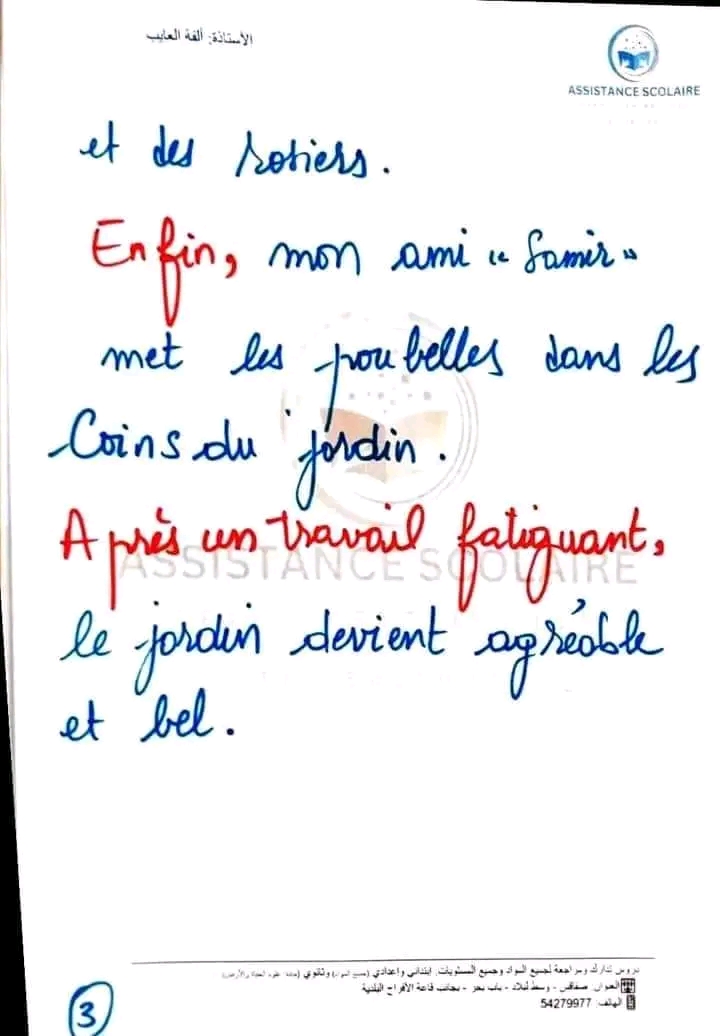 الأستاذة: ألفة العايب
ASSISTANCE SCOLAIRE
et des rosiers.
Enfin, mon ami « Samir »
met les poubelles dans les
Coins du jardin.
Après un travail fatiguant,
ASSISTANCE SCOLAIRE
le jardin devient agréable
et bel.
دروس تدارك ومراجعة لجميع المواد وجميع المستويات: إبتدائي وإعدادي (جميع المواد) وثانوي (مادة علوم الحياة والأرض)
العنوان: صفاقس - وسط البلاد - باب بحر - بجانب قاعة الأفراح البلدية
الهاتف: 54279977
3